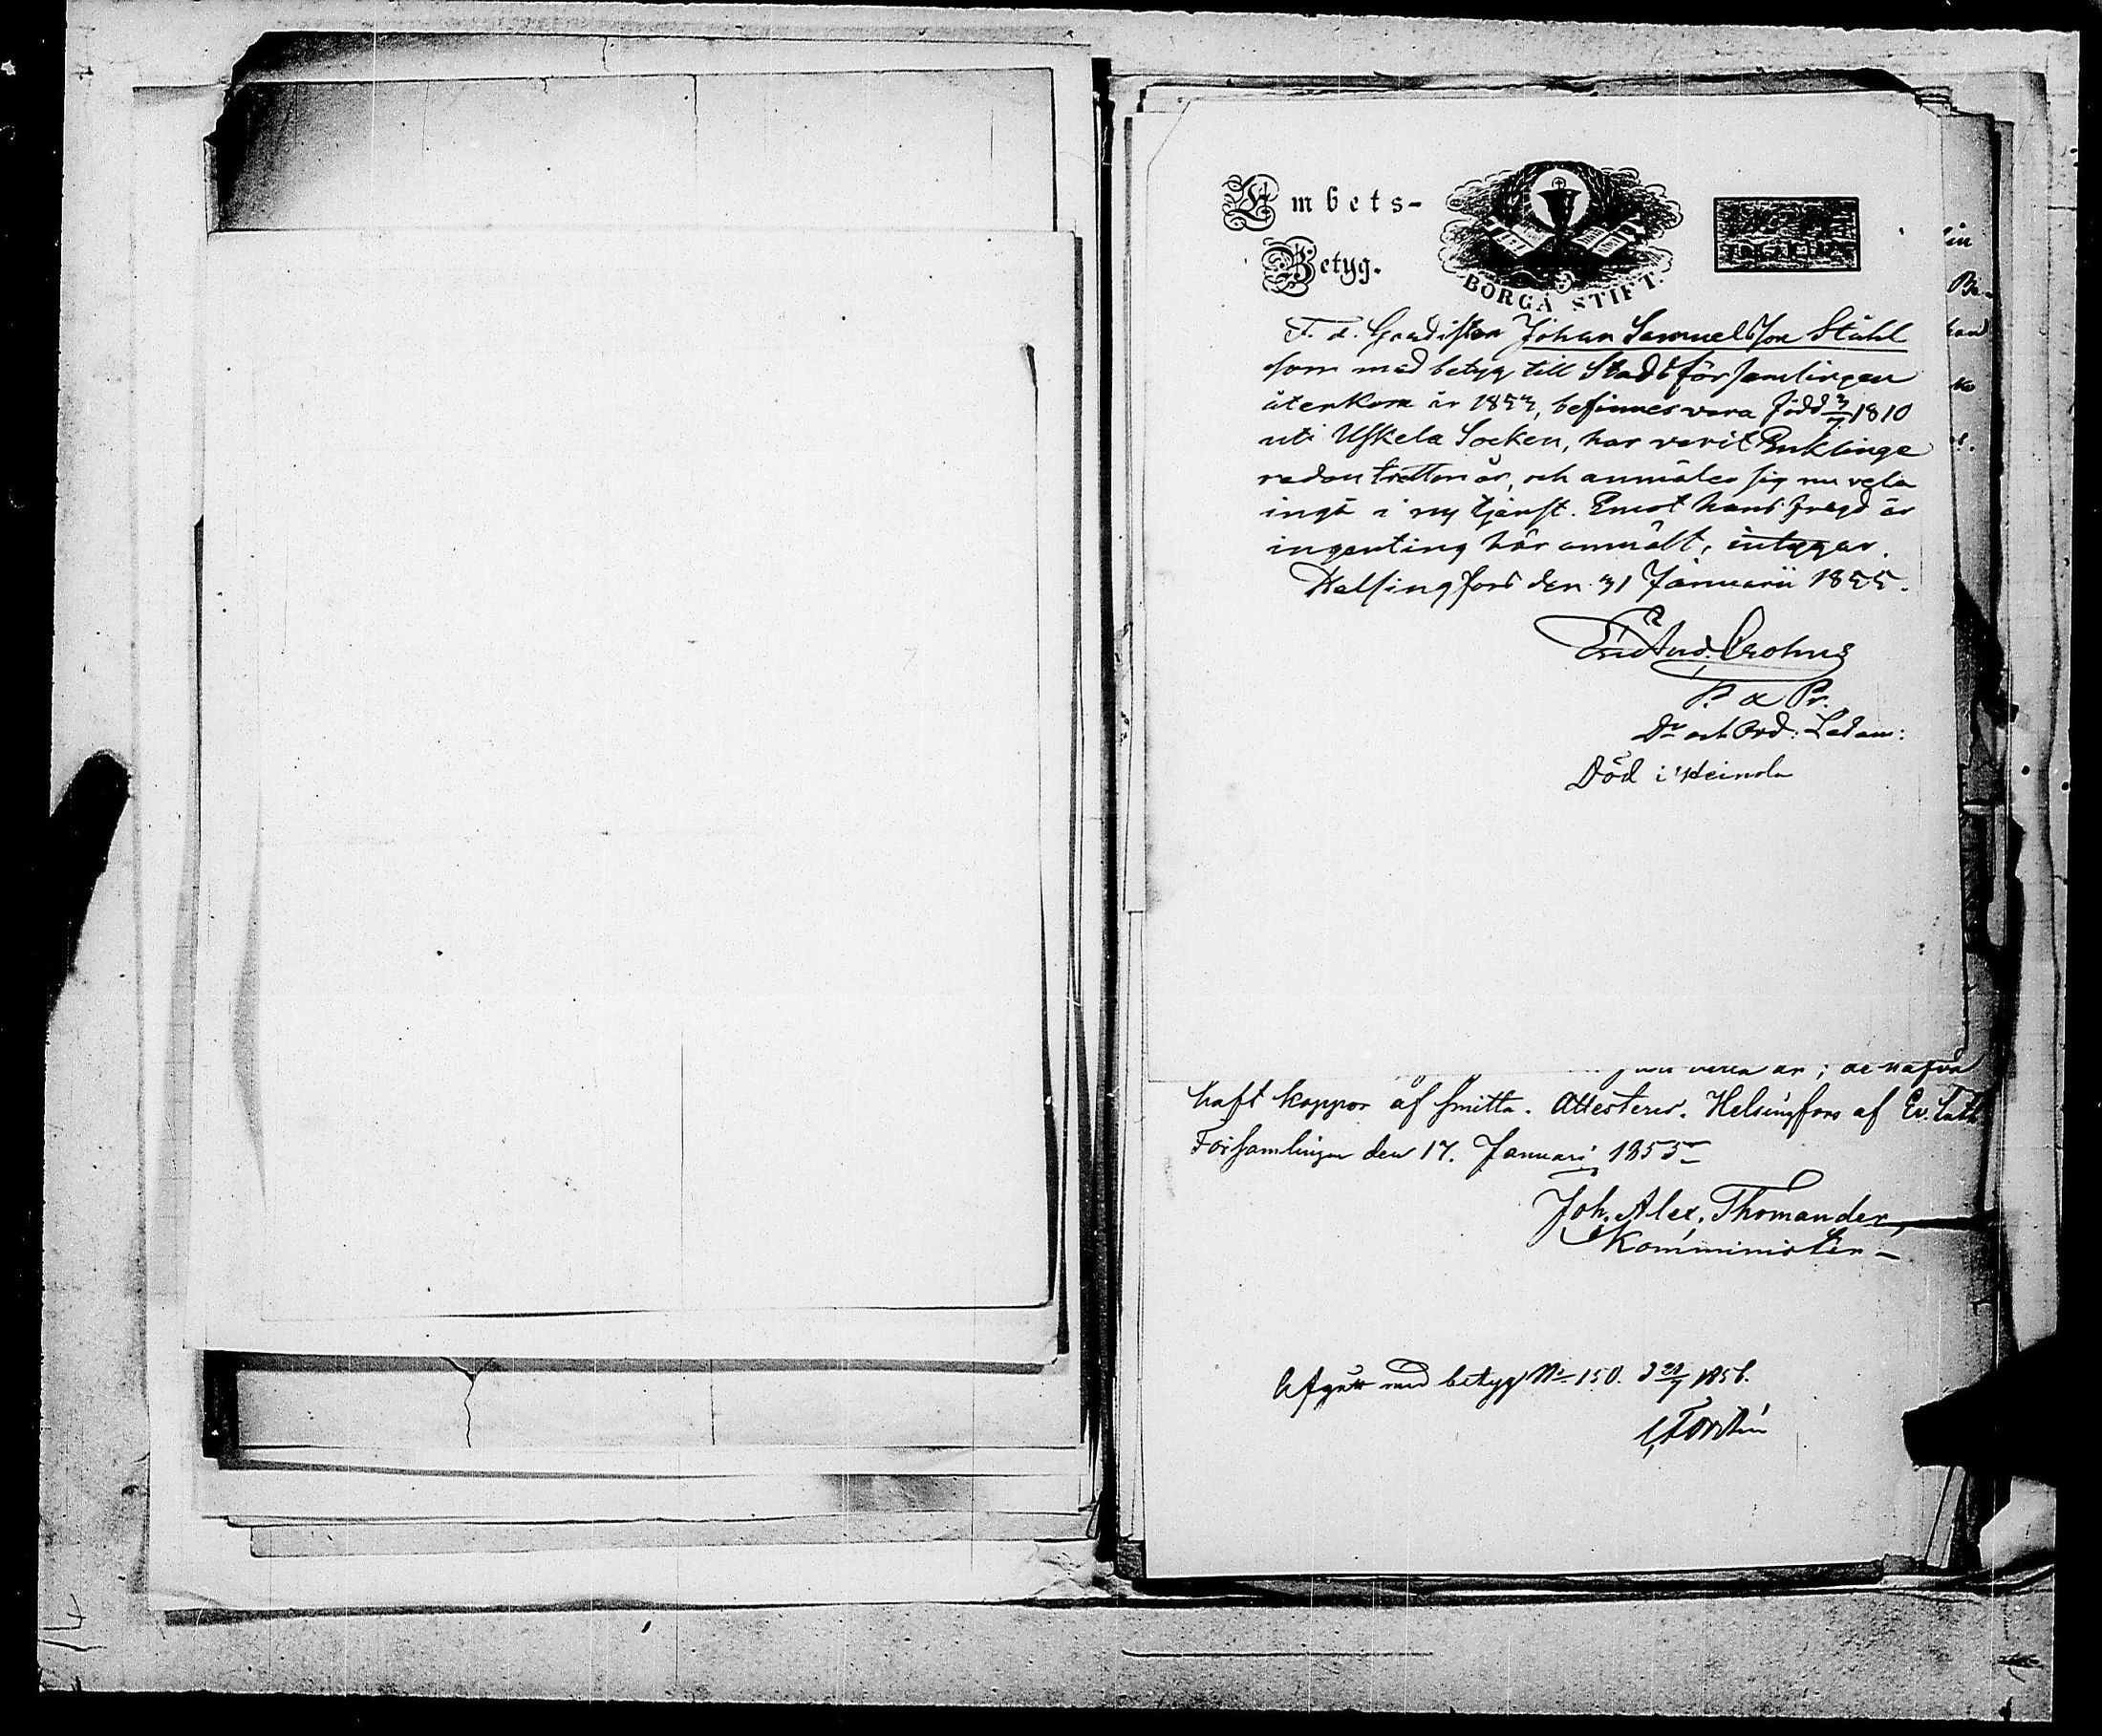 Embets-
Betyg.
BORGÅ STIFT.
F. d. Gardisten Johan Samuelsson Ståhl
som med betyg till Stadsförsamlingen
återkom år 1853, befinnes vara född 3/7 1810
uti Uskela Socken, har varit Enklinge
redan tretton år, och anmäler sig nu velat
ingå i ny tjenst. Emot hans frägd är
ingenting här anmält, intygar.
Helsingfors den 31 Januarii 1855.
Crohns
P. a Pr.
Dr och Ord: Ledam:
Död i Heinola
vara är; de
haft koppor af smitta. Attesteras. Helsingfors af Ev. Luth
Församlingen den 17. Januari 1855
Joh. Alex. Thomander,
Komminister
Afgått med betyg No 150. d 1856.